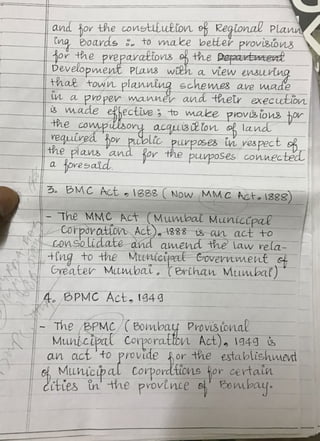 and for the constitution of Regional Plann
ing Boards :- to make better provisions
for the preparations of the Department
Development Plans with a view ensuring
that town planning schemes are made
in a proper manner and their execution
is made effective; to make provisions for
the compulsory acquisition of land
required for public purposes in respect of
the plans and for the purposes connected
a foresaid.
3. BMC Act. 1888 (Now MMC Act. 1888)
- The MMC Act (Mumbai Municipal
Corporation Act). 1888 is an act to
consolidate and amend the law rela-
ting to the Municipal Government of
Greater Mumbai. (Brihan Mumbai)
4. BPMC Act. 1949
- The BPMC (Bombay Provisional
Municipal Corporation Act). 1949 is
an act to provide for the establishment
of Municipal Corportions for certain
cities in the province of Bombay.